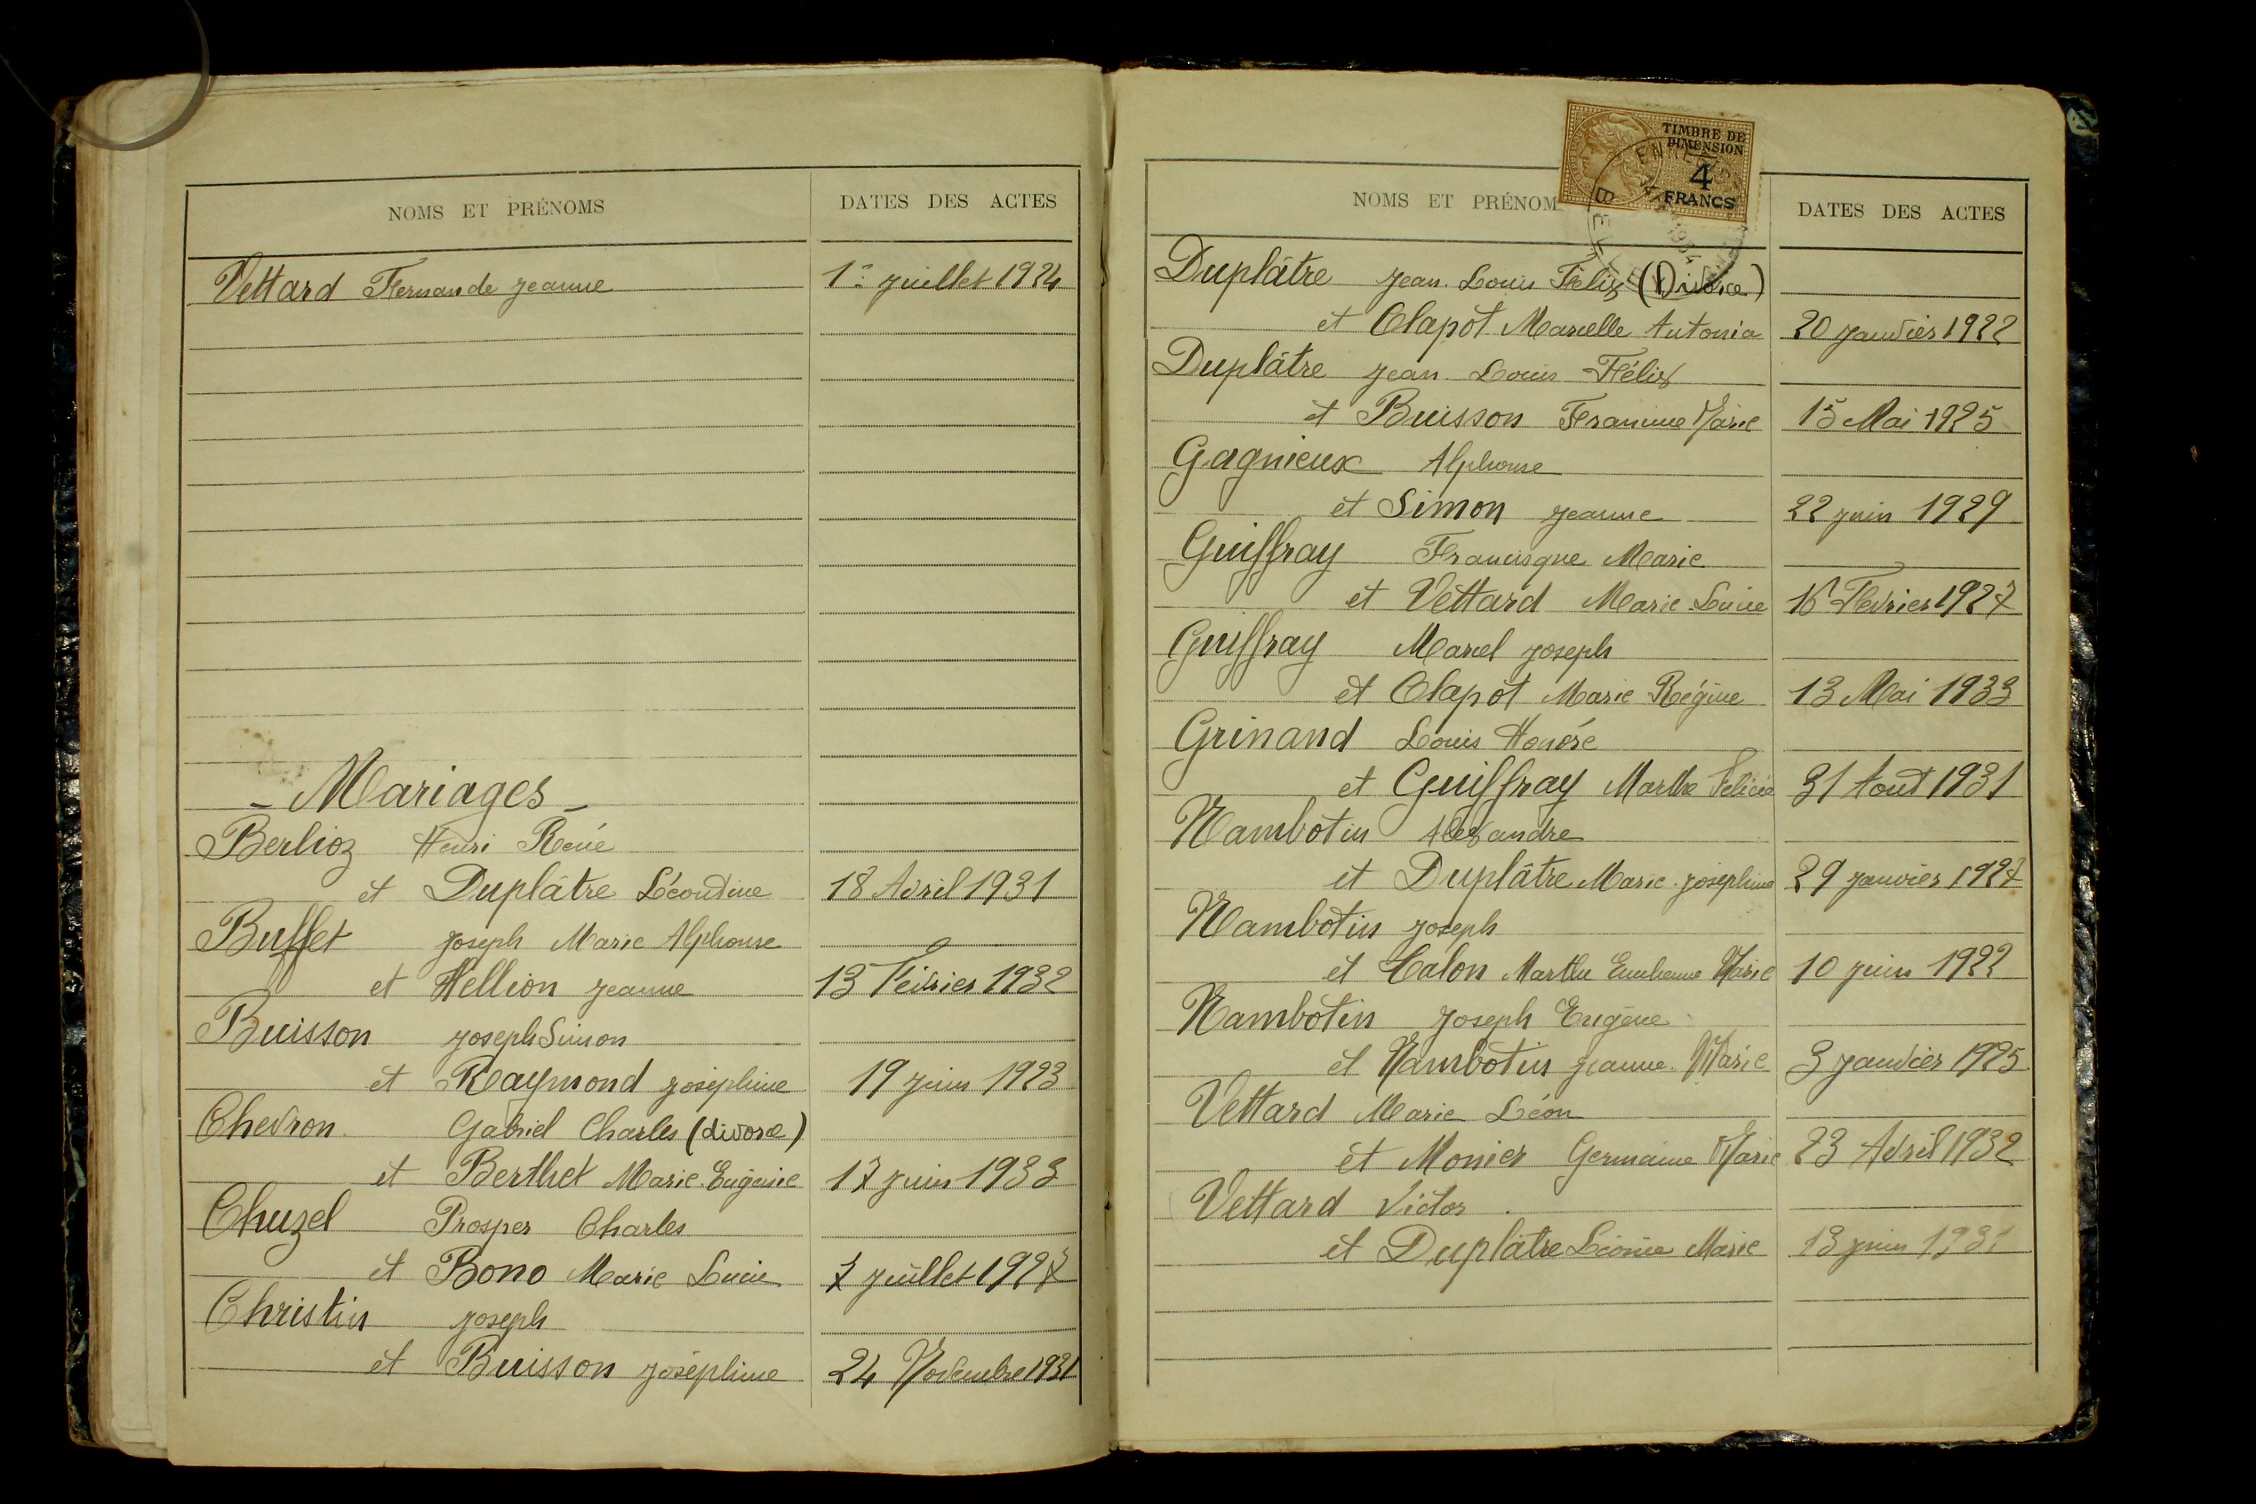 NOMS ET PRÉNOMS DATES DES ACTES
Vettard Fernande Jeanne 1er juillet 1924
- Mariages -
Berlioz Henri René
et Duplâtre Léontine 18 Avril 1931
Buffet Joseph Marie Alphonse
et Hellion Jeanne 13 Février 1932
Buisson Joseph Simon
et Raymond Joséphine 19 juin 1923
Chevron Gabriel Charles (divorce)
et Berthet Marie Eugénie 17 juin 1933
Chuzel Prosper Charles
et Bono Marie Lucie 7 juillet 1927
Christin Joseph
et Buisson Joséphine 24 Novembre 1931
TIMBRE DE
DIMENSION
4
FRANCS
NOMS ET PRÉNOM DATES DES ACTES
Duplâtre Jean Louis Félix (Divorce)
et Clapot Marcelle Antonia 20 janvier 1922
Duplâtre Jean Louis Félix
et Buisson Francine Marie 15 Mai 1925
Gagnieux Alphonse
et Simon Jeanne 22 juin 1929
Guiffray Francisque Marie
et Vettard Marie Lucie 16 Février 1927
Guiffray Marcel Joseph
et Clapot Marie Régine 13 Mai 1933
Grinand Louis Honoré
et Guiffray Marthe Félicie 31 Aout 1931
Nambotin Alexandre
et Duplâtre Marie Joséphine 29 janvier 1927
Nambotin Joseph
et Calon Marthe Marie 10 juin 1922
Nambotin Joseph Eugène
et Nambotin Jeanne Marie 3 janvier 1925
Vettard Marie Léon
et Monier Germaine Marie 23 Avril 1932
Vettard Victor
et Duplâtre Léonie Marie 13 juin 1931